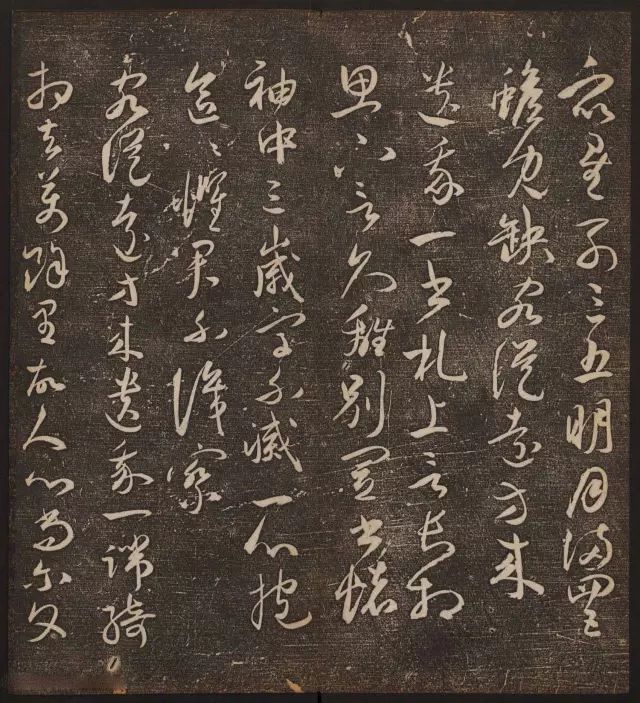 眾星列三五明月滿四五
蟾兔缺客從遠方來
遺我一書札上言長相
思下言久離別置書懷
袖中三歲字不滅一心抱
區〻懼君不識察
客從遠方來遺我一端綺
相去萬餘里故人心尚爾文